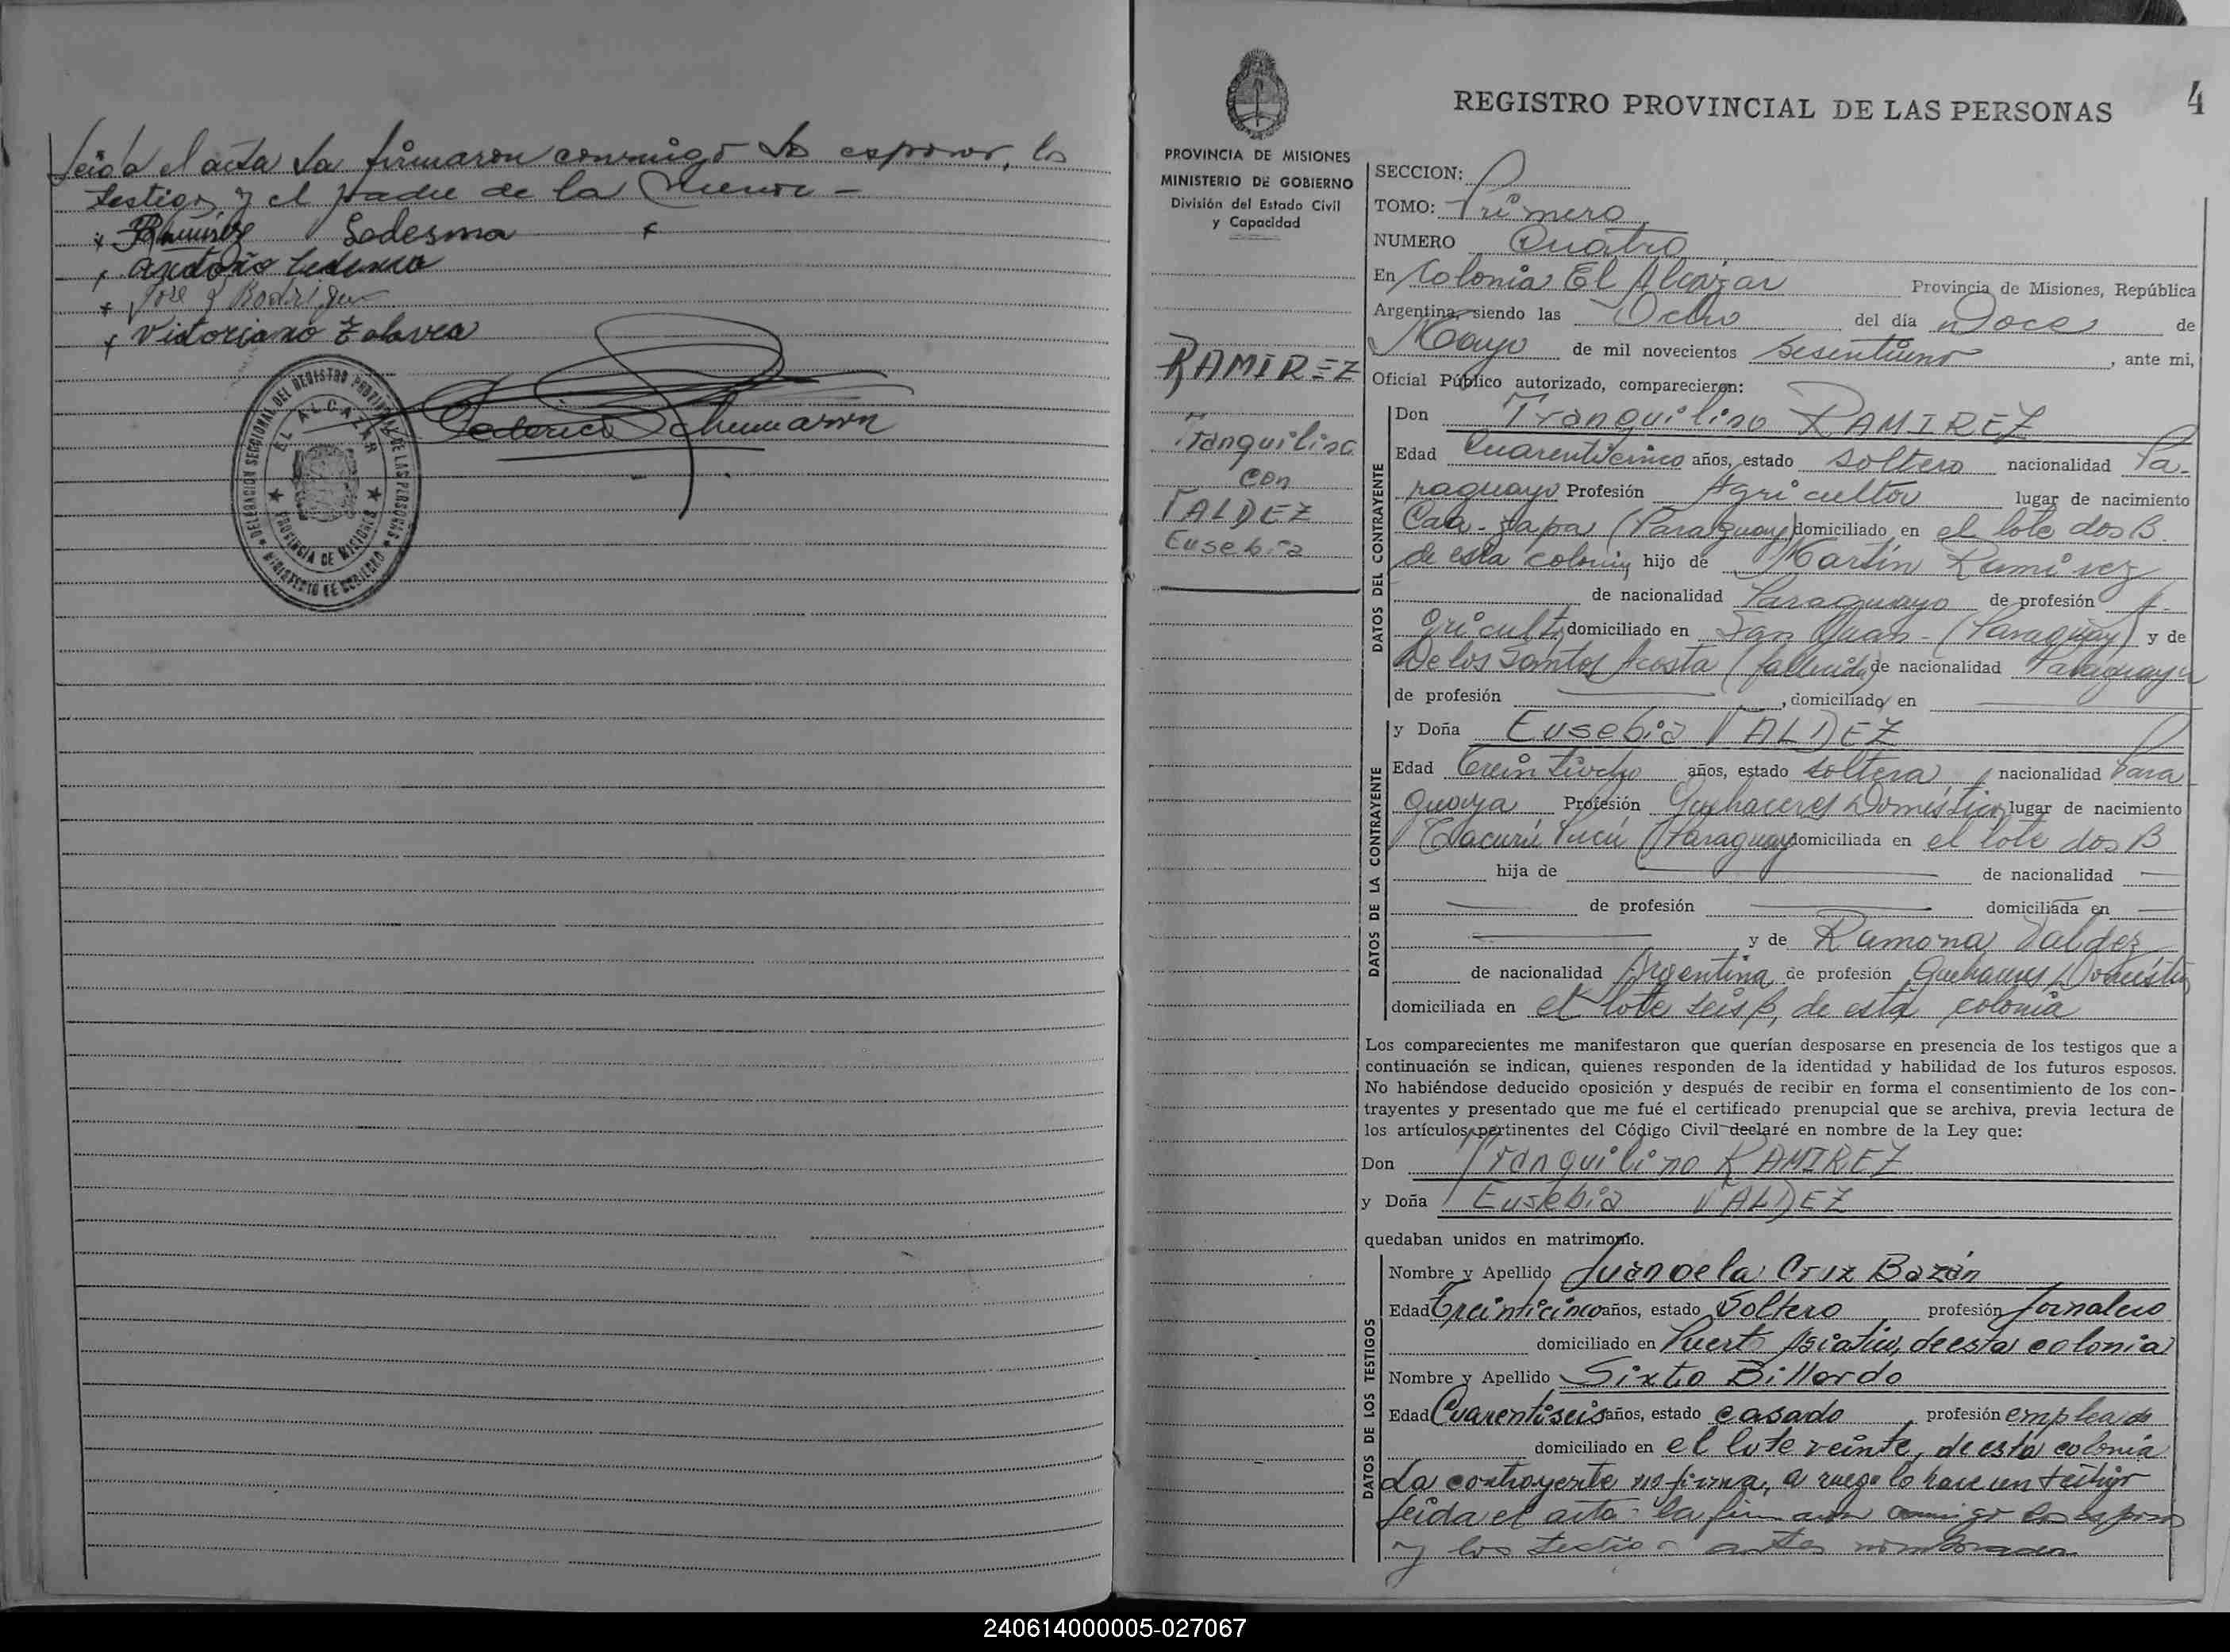 Leída el acta la firmaron conmigo los esposos, los
testigos y el padre de la menor -
Ramírez Ledesma
Antonio Ledesma
José Rodriguez
Victoriano Zalavea
Federico Schumann
DELEGACION SECCIONAL DEL REGISTRO PROVINCIAL DE LAS PERSONAS
EL ALCAZAR
PROVINCIA DE MISIONES
MINISTERIO DE GOBIERNO
REGISTRO PROVINCIAL DE LAS PERSONAS
4
PROVINCIA DE MISIONES
MINISTERIO DE GOBIERNO
División del Estado Civil
y Capacidad
RAMIREZ
Tranquilino
con
VALDEZ
Eusebia
SECCION:
TOMO: Primero
NUMERO Cuatro
En Colonia El Alcazar Provincia de Misiones, República
Argentina, siendo las Ocho del día Doce de
Mayo de mil novecientos sesentiuno, ante mi,
Oficial Público autorizado, comparecieron:
DATOS DEL CONTRAYENTE
Don Tranquilino RAMIREZ
Edad Cuarenticinco años, estado soltero nacionalidad Pa-
raguayo Profesión Agricultor lugar de nacimiento
Caa-zapa (Paraguay) domiciliado en el lote dos B.
de esta colonia, hijo de Martín Ramirez
de nacionalidad Paraguayo de profesión A-
gricult. domiciliado en San Juan - (Paraguay) y de
De los Santos Acosta (fallecida) de nacionalidad Paraguaya
de profesión , domiciliado en
DATOS DE LA CONTRAYENTE
y Doña Eusebia VALDEZ
Edad Treintiocho años, estado soltera, nacionalidad Para
guaya Profesión Quehaceres Domésticos lugar de nacimiento
Tacurú Pucú (Paraguay) domiciliada en el lote dos B
hija de de nacionalidad
de profesión domiciliada en
y de Ramona Valdez
de nacionalidad Argentina de profesión Quehaceres Domésticos
domiciliada en el lote seis B, de esta colonia
Los comparecientes me manifestaron que querían desposarse en presencia de los testigos que a
continuación se indican, quienes responden de la identidad y habilidad de los futuros esposos.
No habiéndose deducido oposición y después de recibir en forma el consentimiento de los con-
trayentes y presentado que me fué el certificado prenupcial que se archiva, previa lectura de
los artículos pertinentes del Código Civil declaré en nombre de la Ley que:
Don Tranquilino RAMIREZ
y Doña Eusebia VALDEZ
quedaban unidos en matrimonio.
DATOS DE LOS TESTIGOS
Nombre y Apellido Juan de la Cruz Bazán
Edad Treinticinco años, estado Soltero profesión Jornalero
domiciliado en Puerto de esta colonia
Nombre y Apellido Sixto Billordo
Edad Cuarentiseis años, estado casado, profesión empleado
domiciliado en el lote veinte, de esta colonia
La contrayente no firma, a ruego lo hace un testigo
leida el acta la firmaron conmigo los esposos
y los testigos antes nombrados
240614000005-027067